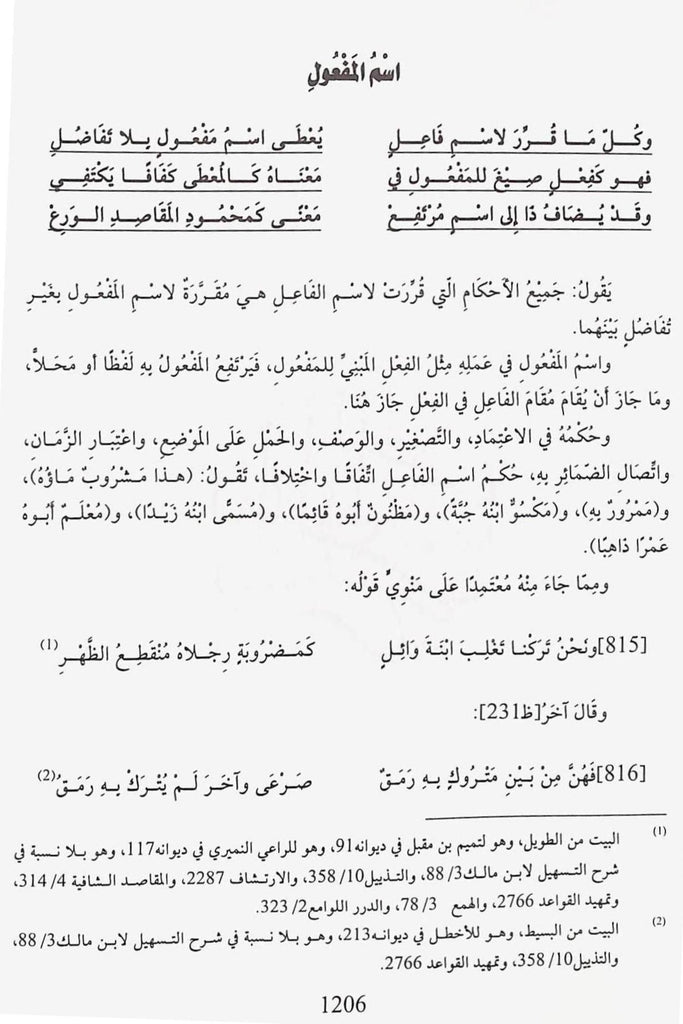 اسْمُ المَفْعُولِ
وكُلّ مَـا قُـرِّرَ لاسْـمِ فَاعِـلِ يُعْطَـى اسْـمُ مَفْعُـولٍ بِـلا تَفَاضُـلِ
فهـو كَفِعْـلٍ صِـيْغَ للمَفْعُـولِ في مَعْنَـاهُ كَـالمُعْطَى كَفَافًـا يَكْتَفِـي
وقَـدْ يُـضَافُ ذَا إلى اسْـمٍ مُرْتَفِـعْ مَعْنًـى كَمَحْمُـودِ المَقَاصِـدِ الـوَرِعْ
يَقُولُ: جَمِيْعُ الأَحْكَامِ الَّتِي قُرِّرَتْ لاسْـمِ الفَاعِـلِ هـيَ مُقَـرَّرَةٌ لاسْـمِ المَفْعُـولِ بِغَيْـرِ
تُفَاضُلٍ بَيْنَهُما.
واسْمُ المَفْعُولِ في عَمَلِهِ مِثْلُ الفِعْلِ المَبْنِيِّ لِلمَفْعُولِ، فَيَرْتَفِعُ المَفْعُولُ بهِ لَفْظًا أو مَحَـلاًّ،
ومَا جَازَ أَنْ يُقَامَ مُقَامَ الفَاعِلِ في الفِعْلِ جَازَ هُنَا.
وحُكْمُهُ في الاعْتِمَادِ، والتَّصْغِيْرِ، والوَصْفِ، والحَمْلِ عَلَى المَوْضِعِ، واعْتِبَارِ الزَّمَانِ،
واتِّصَالِ الضّمَائِرِ بِهِ، حُكْـمُ اسْـمِ الفَاعِـلِ اتِّفَاقًـا واخْتِلافًـا، تَقُـولُ: (هـذا مَـشْرُوبٌ مَـاؤُهُ)،
و(مَمْرُورٌ بِهِ)، و(مَكْسُوٌّ ابْنُهُ جُبَّةً)، و(مَظْنُونٌ أَبُوهُ قَائِمًا)، و(مُسَمًّى ابْنُهُ زَيْـدًا)، و(مُعْلَـمٌ أَبُـوهُ
عَمْرًا ذَاهِبًا).
ومِمَّا جَاءَ مِنْهُ مُعْتَمِدًا عَلَى مَنْوِيٍّ قَوْلُه:
[815]ونَحْنُ تَرَكْنا تَغْلِبَ ابْنَةَ وَائِـلٍ كَمَـضْرُوبَةٍ رِجْـلاهُ مُنْقَطِـعُ الظَّهْـرِ(1)
وقَالَ آخَرُ[231ظ]:
[816]فَهُنَّ مِنْ بَيْنِ مَتْرُوكٍ بِـهِ رَمَـقٌ صَـرْعَى وآخَـرَ لَـمْ يُتْـرَكْ بِـهِ رَمَـقُ(2)
(1) البيت من الطويل، وهو لتميم بن مقبل في ديوانه91، وهو للراعي النميري في ديوانه117، وهو بـلا نـسبة في
شرح التسهيل لابـن مالـك3/ 88، والتـذييل10/ 358، والارتـشاف 2287، والمقاصـد الشـافية 4/ 314،
وتمهيد القواعد 2766، والهمع 3/ 78، والدرر اللوامع2/ 323.
(2) البيت من البسيط، وهو للأخطل في ديوانـه213، وهـو بـلا نـسبة في شـرح التسهيل لابـن مالـك3/ 88،
والتذييل10/ 358، وتمهيد القواعد 2766.
1206